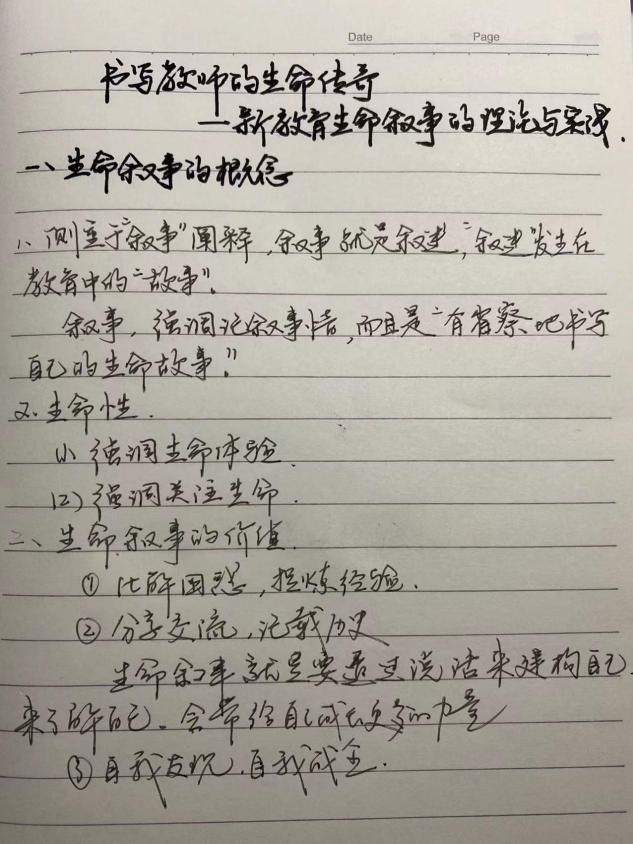 Date Page
书写教师的生命传奇
—新教育生命叙事的理论与实践.
一、生命叙事的概念
1、侧重于"叙事"阐释,叙事就是叙述,"叙述"发生在
教育中的"故事"。
叙事,强调记叙事情,而且是"有省察地书写
自己的生命故事。"
2.生命性.
(1)强调生命体验.
(2)强调关注生命.
二、生命叙事的价值.
①化解困惑,提炼经验.
②分享交流,记载历史
生命叙事就是要通过说话来建构自己.
来了解自己.会带给自己成长更多的力量
③自我发现.自我成全.